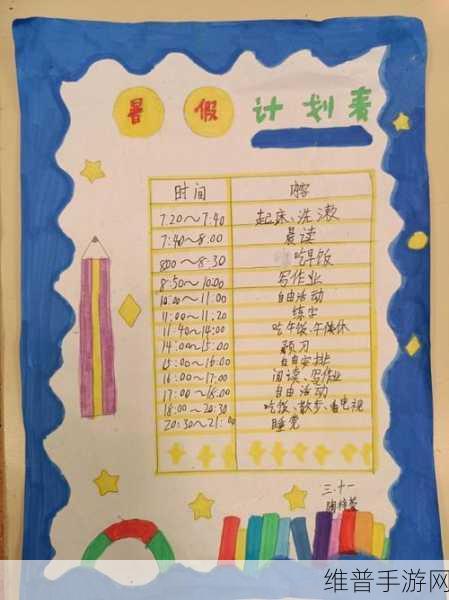 暑假计划表
时间 内容
7:20～7:40 起床、洗漱
7:40～8:00 晨读
8:00～8:30 吃早饭
8:50～10:00 写作业
10:00～11:00 自由活动
11:00～11:20 练字
11:40～14:00 吃午饭、午休
14:00～15:00 预习
15:00～16:00 自由安排
16:00～17:00 阅读、写作业
17:00～18:00 自由活动
18:00～20:30 吃饭、散步、看电视
20:30～21:00 睡觉
三、十一
维普手游网